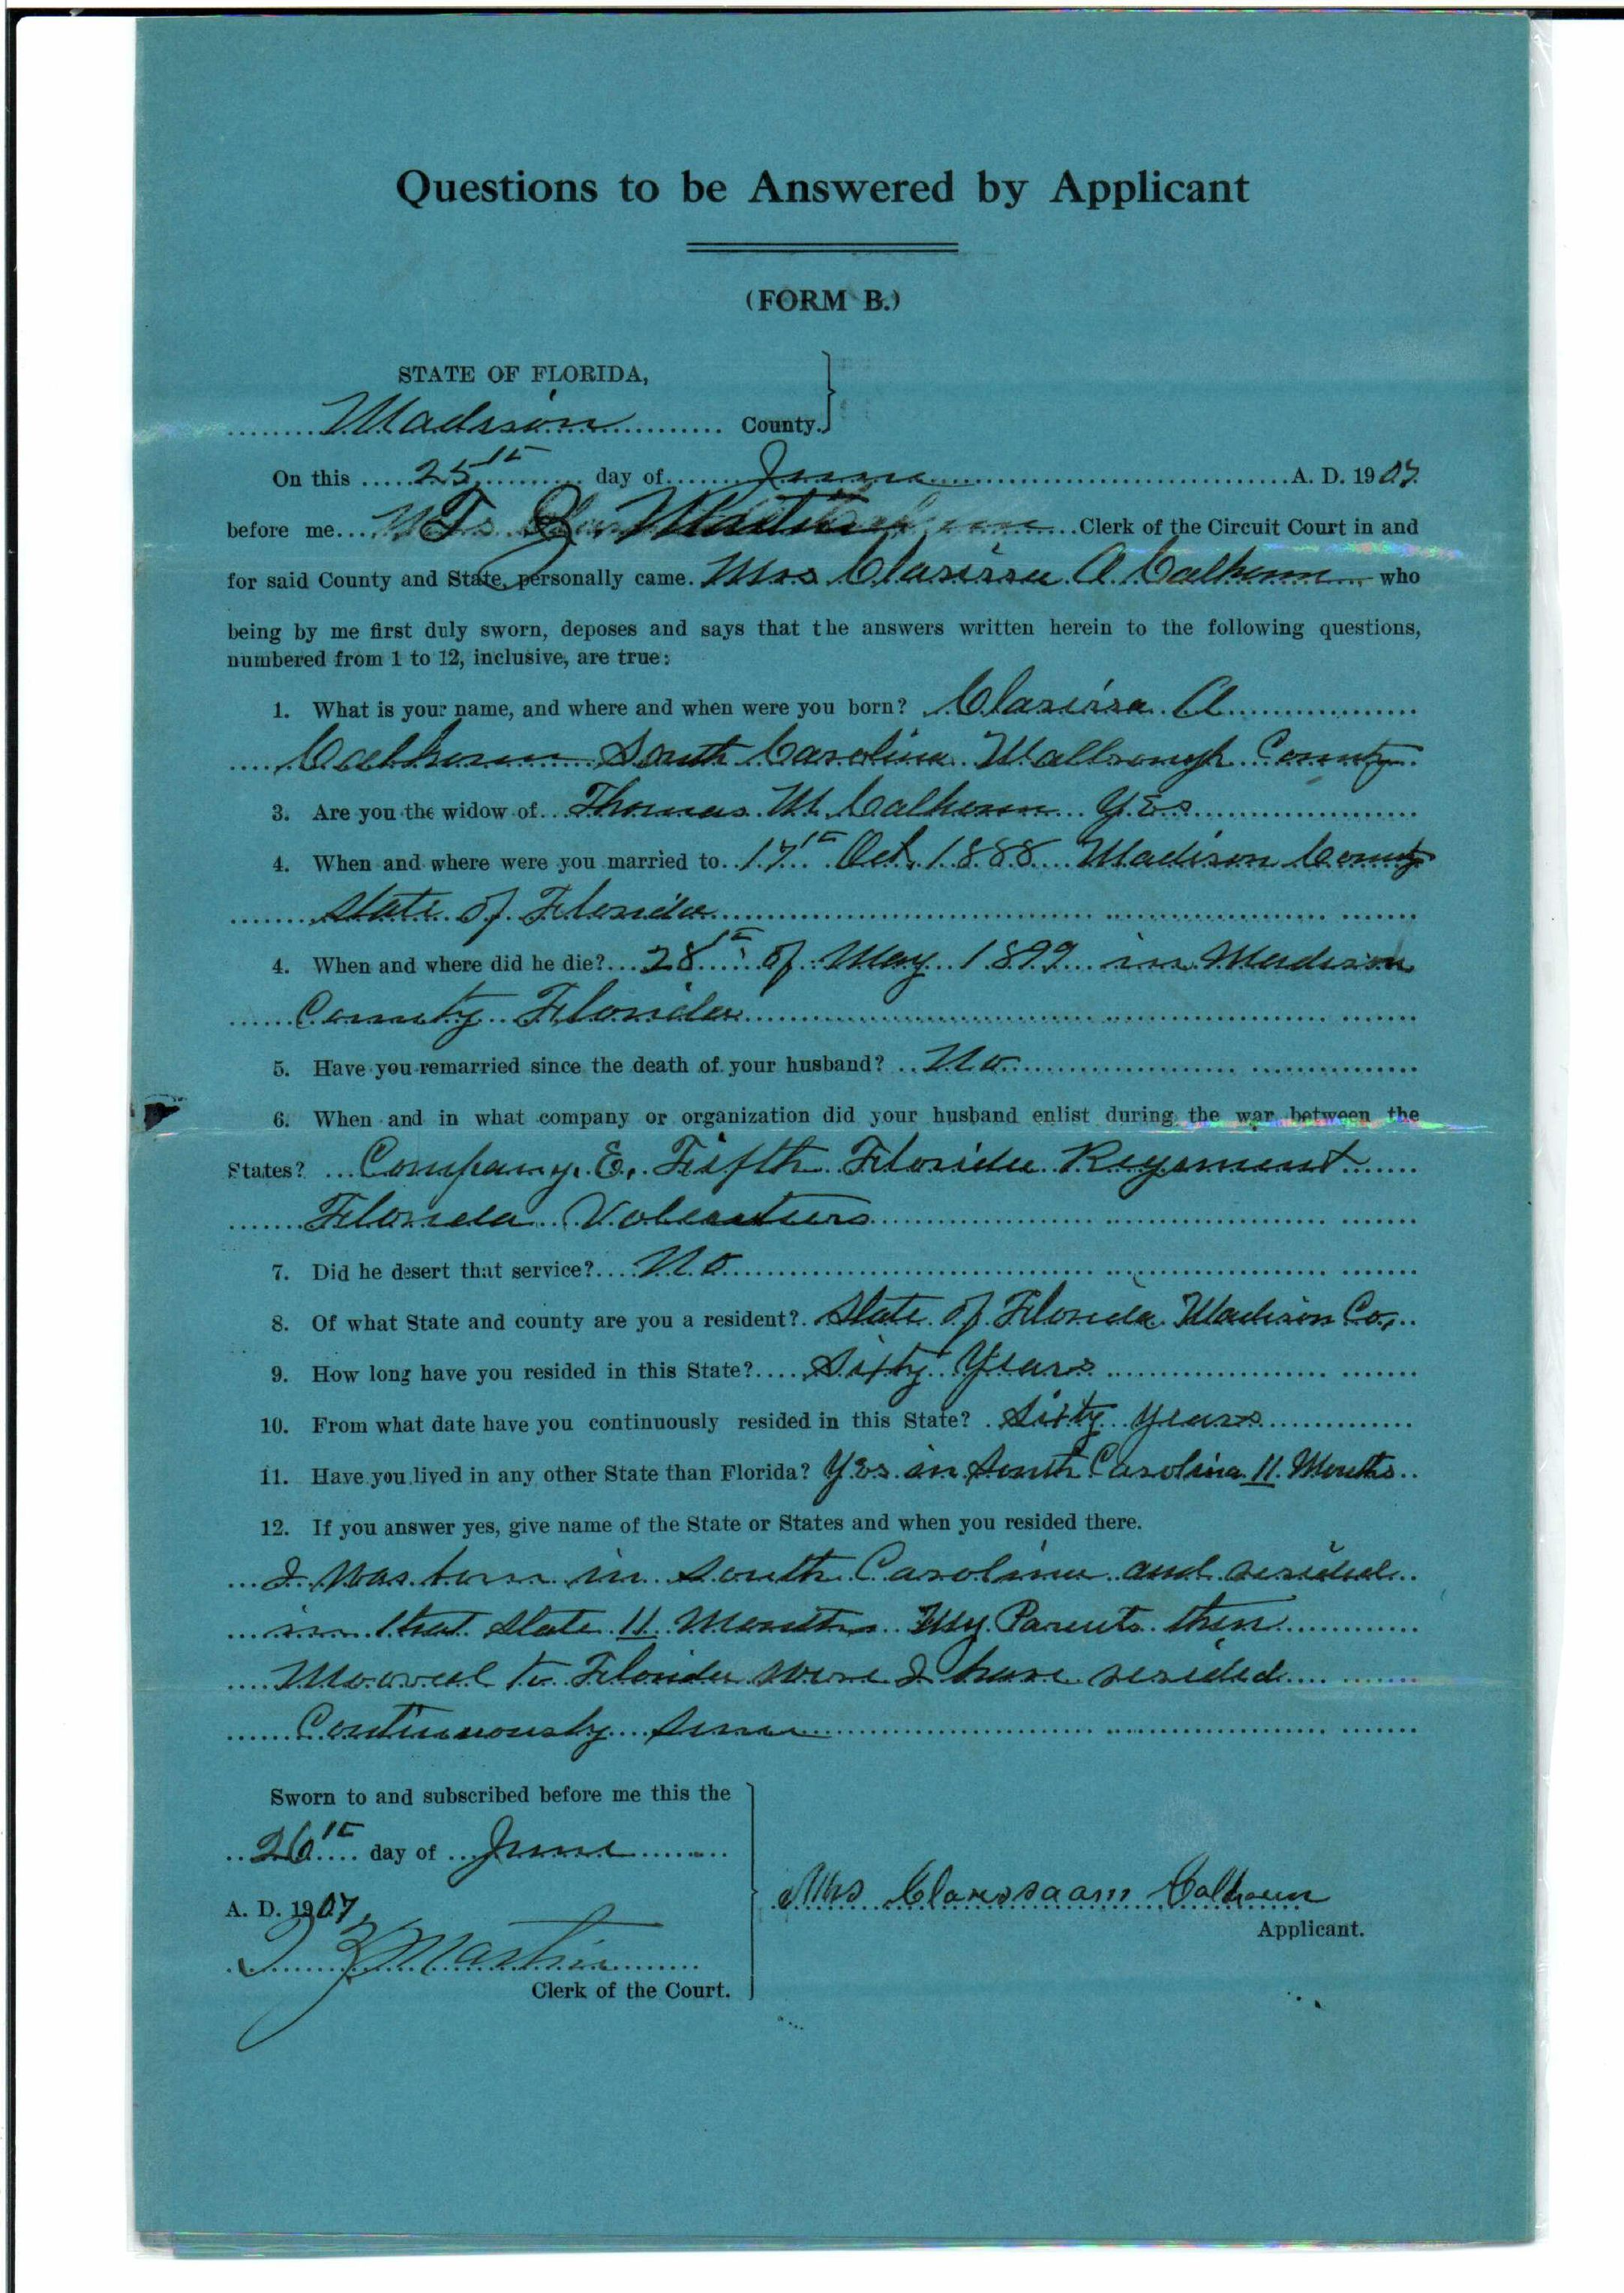 Questions to be Answered by Applicant
(FORM B.)
STATE OF FLORIDA,
Madison County.
On this 25th day of June A. D. 1907
before me Clerk of the Circuit Court in and
for said County and State, personally came Mrs Clarissa A Calhoun who
being by me first duly sworn, deposes and says that the answers written herein to the following questions,
numbered from 1 to 12, inclusive, are true:
1. What is your name, and where and when were you born? Clarissa A
Calhoun South Carolina Wallbrough County
3. Are you the widow of Thomas M. Calhoun Yes
4. When and where were you married to 17th Oct. 1888 Madison County
State of Florida
4. When and where did he die? 28th of May 1899 in Madison
County Florida
5. Have you remarried since the death of your husband? No
6. When and in what company or organization did your husband enlist during the war between the
States? Company E, Fifth Florida Regement
Florida
7. Did he desert that service? No
8. Of what State and county are you a resident? State of Florida Madison Co,
9. How long have you resided in this State? Sixty Years
10. From what date have you continuously resided in this State? Sixty Years
11. Have you lived in any other State than Florida? Yes in South Carolina 11 Months
12. If you answer yes, give name of the State or States and when you resided there.
I was born in South Carolina and resided
in that State 11 Months My Parents then
to Florida were I have resided
Continuously
Sworn to and subscribed before me this the
26th day of June
A. D. 1907
Martin
Clerk of the Court.
Mrs Calhoun
Applicant.